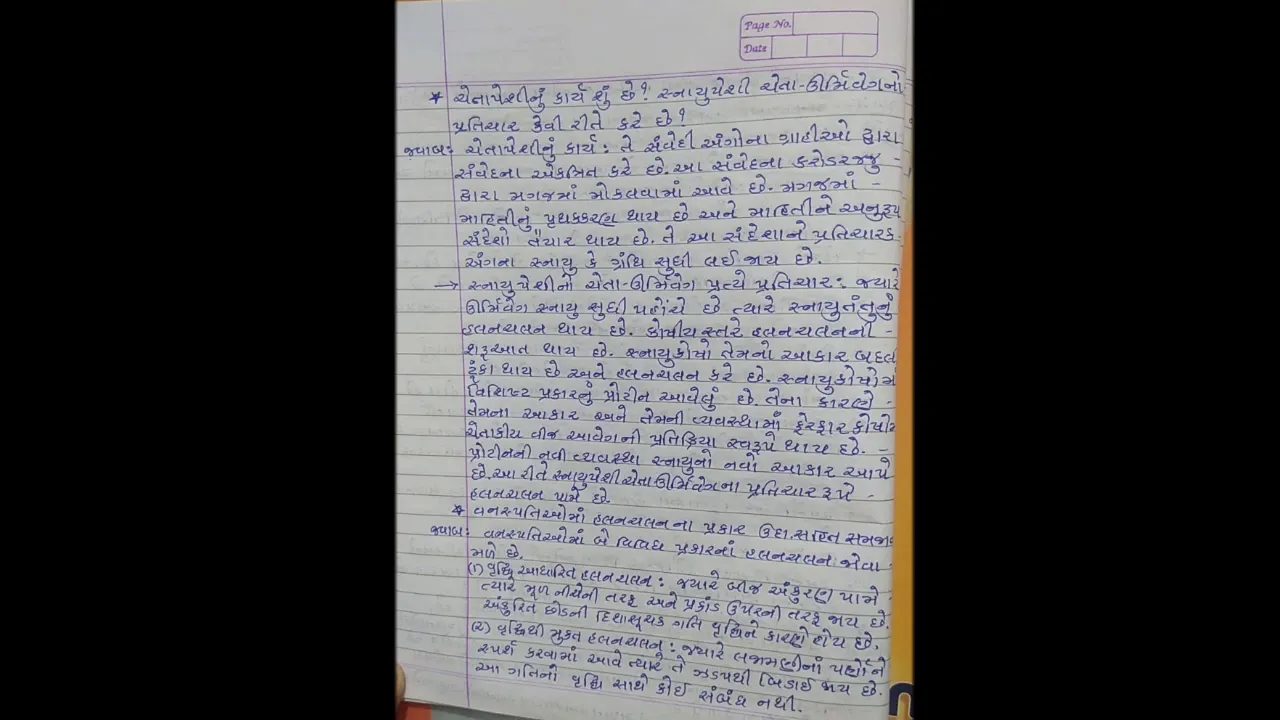 Page No.
Date
* ચેતાપેશીનું કાર્ય શું છે? સ્નાયુપેશી ચેતા-ઊર્મિવેગનો
પ્રતિચાર કેવી રીતે કરે છે?
જવાબ: ચેતાપેશીનું કાર્ય : તે સંવેદી અંગોના ગ્રાહીઓ દ્વારા
સંવેદના એકત્રિત કરે છે. આ સંવેદના કરોડરજ્જુ -
દ્વારા મગજમાં મોકલવામાં આવે છે. મગજમાં -
માહિતીનું પૃથક્કરણ થાય છે અને માહિતીને અનુરૂપ
સંદેશો તૈયાર થાય છે. તે આ સંદેશાને પ્રતિચારક
અંગના સ્નાયુ કે ગ્રંથિ સુધી લઈ જાય છે.
→ સ્નાયુપેશીનો ચેતા-ઊર્મિવેગ પ્રત્યે પ્રતિચાર : જ્યારે
ઊર્મિવેગ સ્નાયુ સુધી પહોંચે છે ત્યારે સ્નાયુતંતુનું
હલનચલન થાય છે. કોષીય સ્તરે હલનચલનની -
શરૂઆત થાય છે. સ્નાયુકોષો તેમનો આકાર બદલ
ટૂંકા થાય છે અને હલનચલન કરે છે. સ્નાયુકોષોમાં
વિશિષ્ટ પ્રકારનું પ્રોટીન આવેલું છે. તેના કારણે -
તેમના આકાર અને તેમની વ્યવસ્થામાં ફેરફાર કોષોમ
ચેતાકીય વીજ આવેગની પ્રતિક્રિયા સ્વરૂપે થાય છે. -
પ્રોટીનની નવી વ્યવસ્થા સ્નાયુનો નવો આકાર આપે
છે. આ રીતે સ્નાયુપેશી ચેતા ઊર્મિવેગના પ્રતિચાર રૂપે -
હલનચલન પામે છે.
* વનસ્પતિઓમાં હલનચલન ના પ્રકાર ઉદા. સહિત સમજાવ
જવાબ: વનસ્પતિઓમાં બે વિવિધ પ્રકારનાં હલનચલન જોવા
મળે છે.
(1) વૃદ્ધિ આધારિત હલનચલન : જ્યારે બીજ અંકુરણ પામે
ત્યારે મૂળ નીચેની તરફ અને પ્રકાંડ ઉપરની તરફ જાય છે.
અંકુરિત છોડની દિશાસૂચક ગતિ વૃદ્ધિને કારણે હોય છે.
(૨) વૃદ્ધિથી મુક્ત હલનચલન : જ્યારે લજામણીનાં પર્ણોને
સ્પર્શ કરવામાં આવે ત્યારે તે ઝડપથી બિડાઈ જાય છે.
આ ગતિનો વૃદ્ધિ સાથે કોઈ સંબંધ નથી.